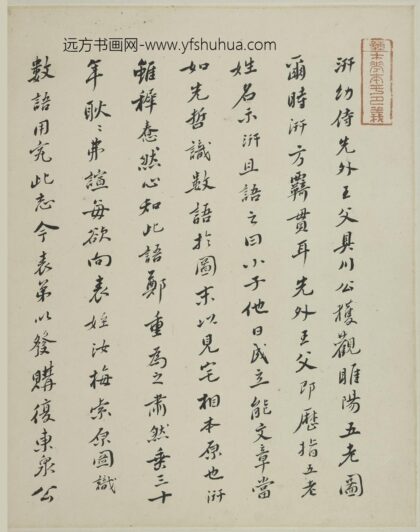 远方书画网-www.yfshuhua.com
澣幼侍先外王父具川公獲觀睢陽五老圖
爾時澣方羈貫耳先外王父即歷指五老
姓名示澣且語之曰小子他日成立能文章當
如先哲識數語於圖末以見宅相本原也澣
雖稺愚然心知此語鄭重為之肅然垂三十
年耿〻弗諼每欲向表姪汝梅索原圖識
數語用完此志今表弟以發購復東泉公